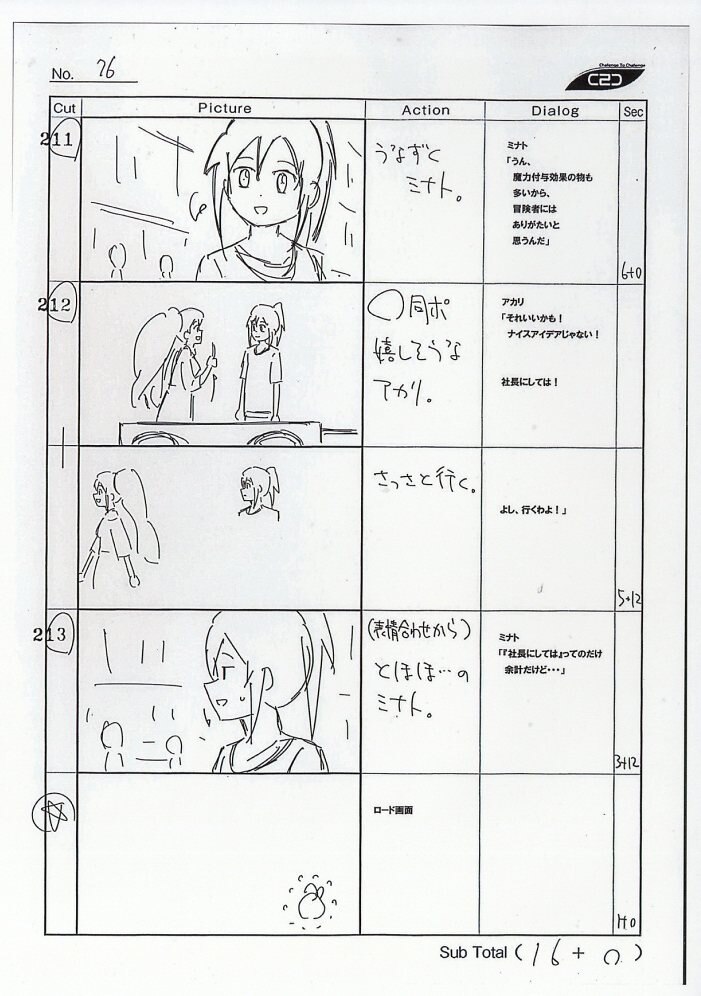 No. 76
Challenge To Challenge
C2C
Cut Picture Action Dialog Sec
211
うなずく
ミナト。
ミナト
「うん、
魔力付与効果の物も
多いから、
冒険者には
ありがたいと
思うんだ」
6+0
212
同ポ
嬉しそうな
アカリ。
アカリ
「それいいかも！
ナイスアイデアじゃない！
社長にしては！
さっさと行く。
よし、行くわよ！」
5+12
213
(表情合わせから)
とほほ…の
ミナト。
ミナト
「『社長にしては』ってのだけ
余計だけど・・・」
3+12
ロード画面
1+0
Sub Total (16 + 0)